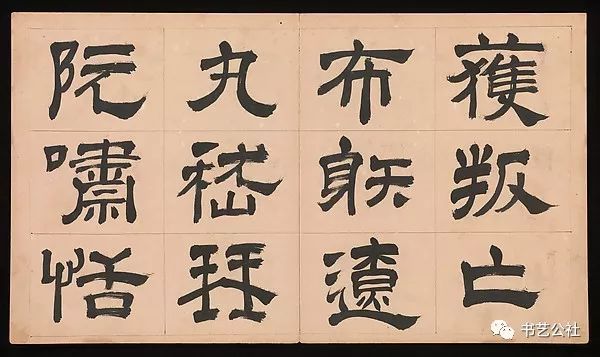 獲叛亡
布䠶遼
丸嵇琴
阮嘯恬
书艺公社